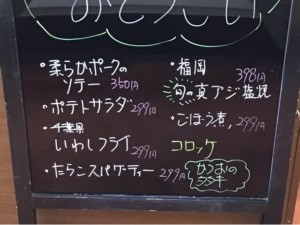 おとうさい
・柔らかポークの
ソテー 350円
・ポテトサラダ 299円
・千葉県
いわしフライ 299円
・たらこスパゲーティー 299円
・福岡 398円
旬の真アジ塩焼
・ごぼう煮, 299円
コロッケ
かつおの
タタキ